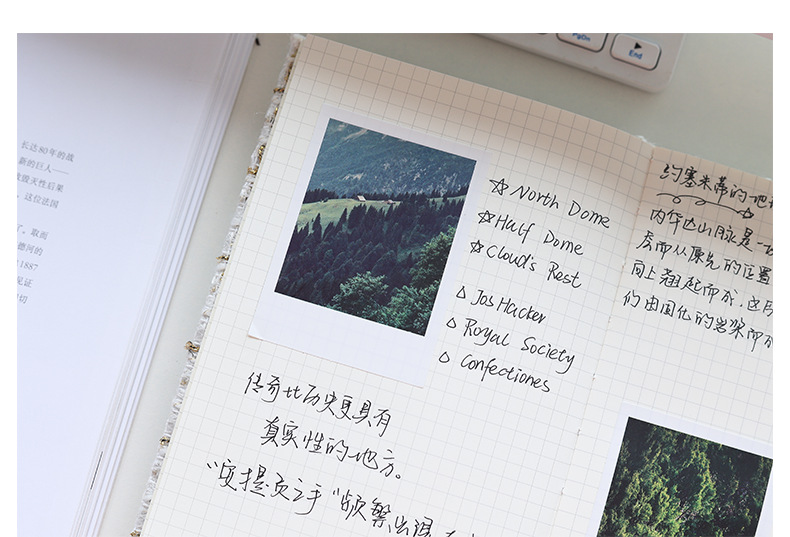 PgDn
End
长达80年的战
新的巨人——
毁灭性后果
这位法国
了。取而
德河的
1887
见证
切
☆North Dome
☆Half Dome
☆Cloud's Rest
△ Jos Hacker
△ Royal Society
△ Confectiones
传奇比历史更具有
真实性的地方。
"安提贡之手"频繁出现
约塞米蒂的地
内华达山脉是一
房而从原先的位置
向上翘起而成，这
们由固化的岩浆而